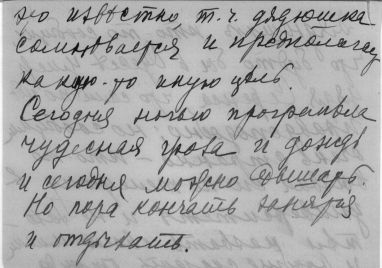 это известно, т.ч. дядюшка
сомневается и предполагает
какую-то иную цель.
Сегодня ночью прогремела
чудесная гроза и дождь
и сегодня можно дышать.
Но пора кончать занятия
и отдыхать.